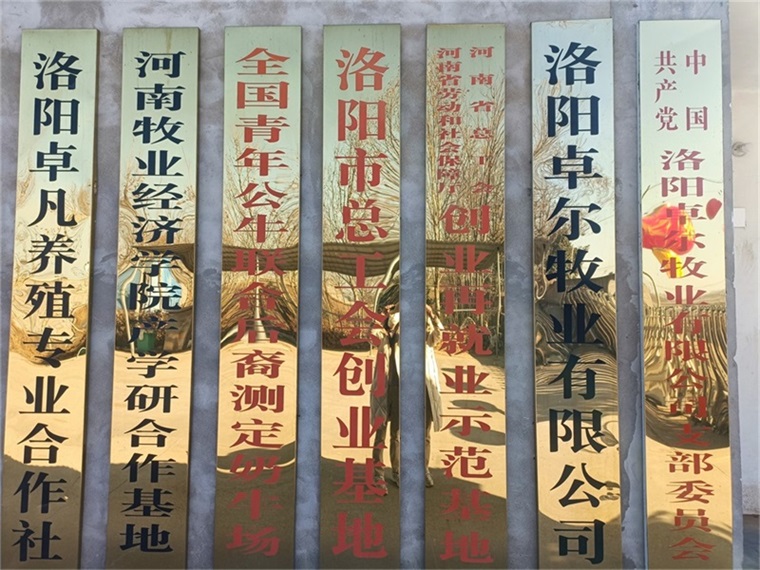 洛阳卓凡养殖专业合作社
河南牧业经济学院产学研合作基地
全国青年公牛联合后裔测定奶牛场
洛阳市总工会创业基地
河南省总工会
河南省劳动和社会保障厅
创业再就业示范基地
洛阳卓尔牧业有限公司
中国
共产党
洛阳卓尔牧业有限公司支部委员会